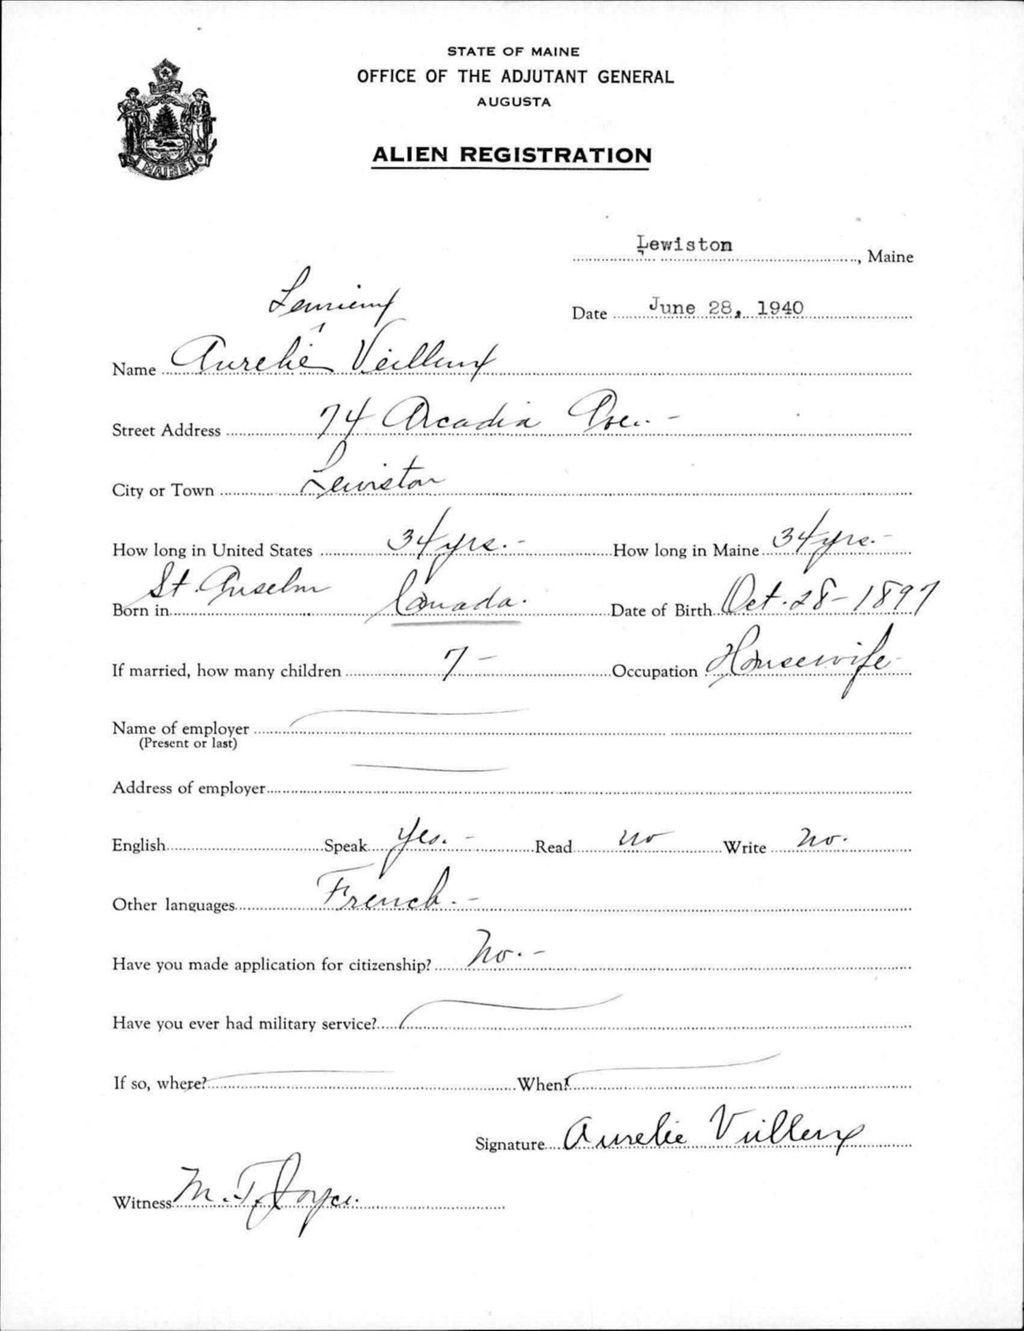 STATE OF MAINE
OFFICE OF THE ADJUTANT GENERAL
AUGUSTA
ALIEN REGISTRATION
MAINE
Lewiston, Maine
Date June 28, 1940
Name Aurelie Veilleux
Street Address 74 Arcadia Ave. -
City or Town Lewiston
How long in United States 34 yrs. - How long in Maine 34 yrs. -
Born in St. Anselm Canada. Date of Birth Oct. 28 - 1897
If married, how many children 7 - Occupation Housewife -
Name of employer
(Present or last)
Address of employer
English Speak Yes. - Read no Write No.
Other languages French. -
Have you made application for citizenship? No. -
Have you ever had military service?
If so, where? When?
Signature Aurelie Veilleux
Witness M. T. Joyce.